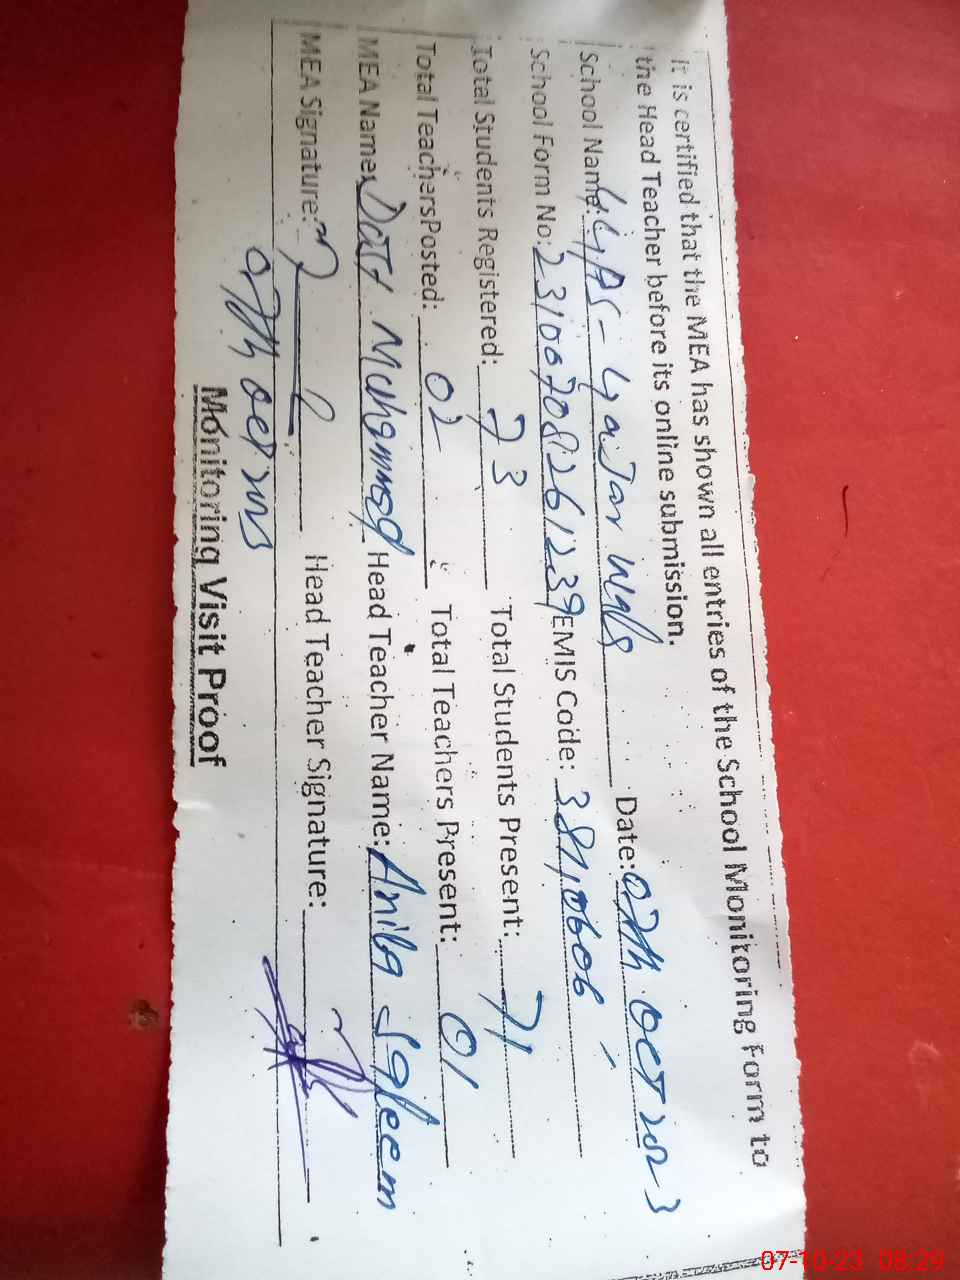 It is certified that the MEA has shown all entries of the School Monitoring Form to
the Head Teacher before its online submission.
School Name: GGPS- Gajar Wala Date: 07th Oct 2023
School Form No: 23100708261239 EMIS Code: 38110606
Total Students Registered: 73 Total Students Present: 71
Total Teachers Posted: 02 Total Teachers Present: 01
MEA Name: Mahmmod Head Teacher Name: Anila Saleem
MEA Signature: Head Teacher Signature:
Monitoring Visit Proof
07-10-23 08:29